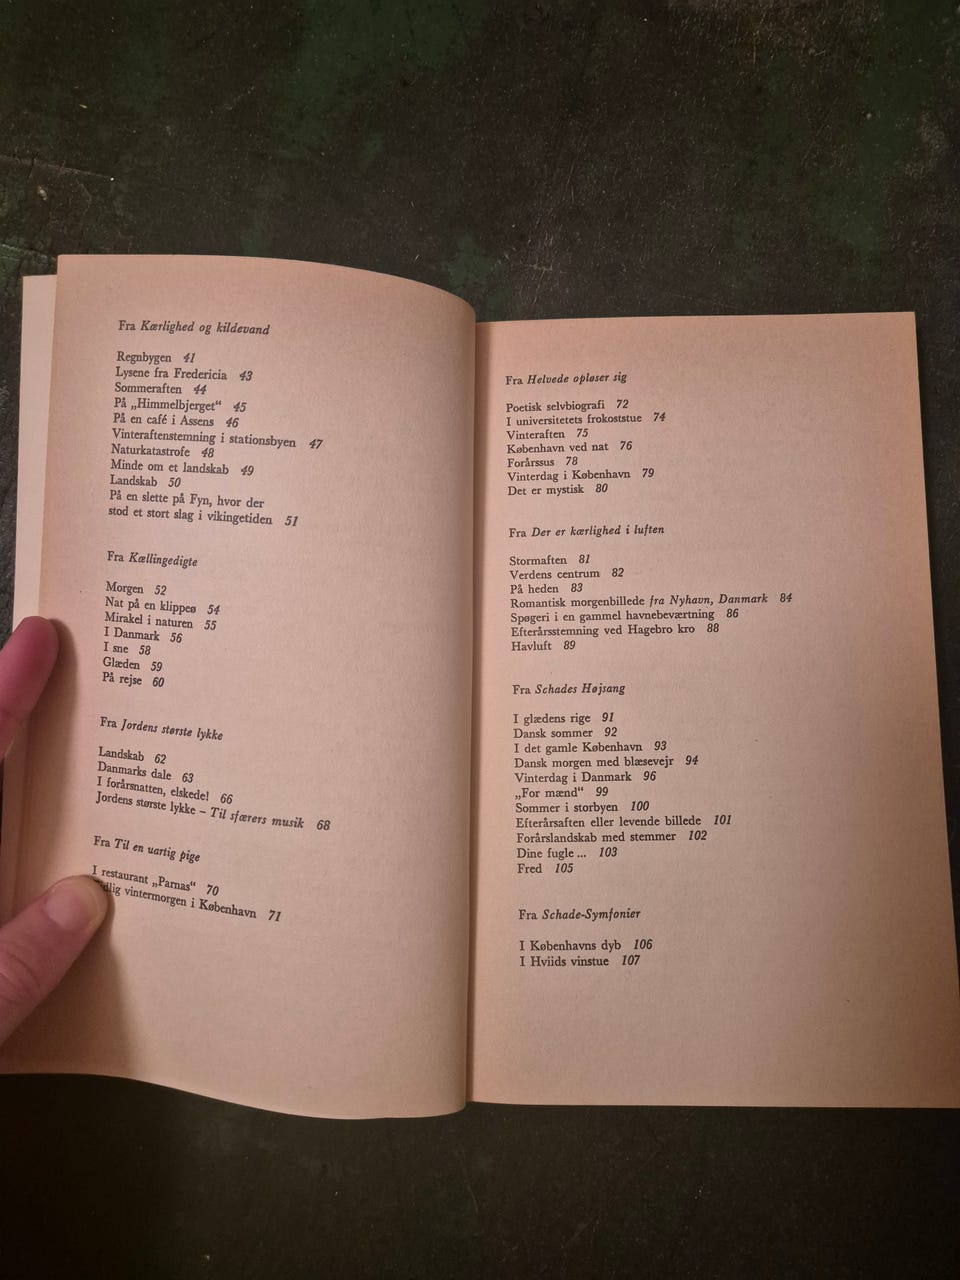 Fra Kærlighed og kildevand
Regnbygen 41
Lysene fra Fredericia 43
Sommeraften 44
På „Himmelbjerget“ 45
På en café i Assens 46
Vinteraftenstemning i stationsbyen 47
Naturkatastrofe 48
Minde om et landskab 49
Landskab 50
På en slette på Fyn, hvor der
stod et stort slag i vikingetiden 51
Fra Kællingedigte
Morgen 52
Nat på en klippeø 54
Mirakel i naturen 55
I Danmark 56
I sne 58
Glæden 59
På rejse 60
Fra Jordens største lykke
Landskab 62
Danmarks dale 63
I forårsnatten, elskede! 66
Jordens største lykke – Til sfærers musik 68
Fra Til en uartig pige
I restaurant „Parnas“ 70
vintermorgen i København 71
Fra Helvede opløser sig
Poetisk selvbiografi 72
I universitetets frokoststue 74
Vinteraften 75
København ved nat 76
Forårssus 78
Vinterdag i København 79
Det er mystisk 80
Fra Der er kærlighed i luften
Stormaften 81
Verdens centrum 82
På heden 83
Romantisk morgenbillede fra Nyhavn, Danmark 84
Spøgeri i en gammel havnebeværtning 86
Efterårsstemning ved Hagebro kro 88
Havluft 89
Fra Schades Højsang
I glædens rige 91
Dansk sommer 92
I det gamle København 93
Dansk morgen med blæsevejr 94
Vinterdag i Danmark 96
„For mænd“ 99
Sommer i storbyen 100
Efterårsaften eller levende billede 101
Forårslandskab med stemmer 102
Dine fugle ... 103
Fred 105
Fra Schade-Symfonier
I Københavns dyb 106
I Hviids vinstue 107